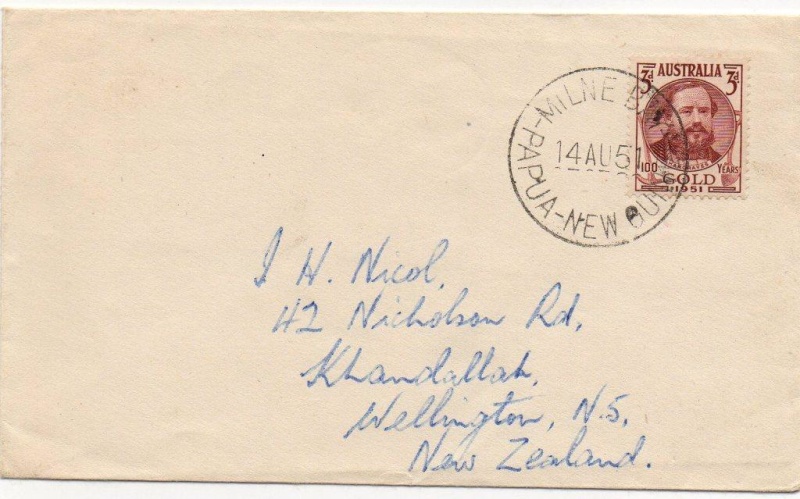 3d AUSTRALIA 3d
HARGRAVES
100 YEARS
GOLD
1951
MILNE BAY
14 AU 51
PAPUA-NEW GUINEA
I H. Nicol,
42 Nicholson Rd,
Khandallah,
Wellington, N.5,
New Zealand.